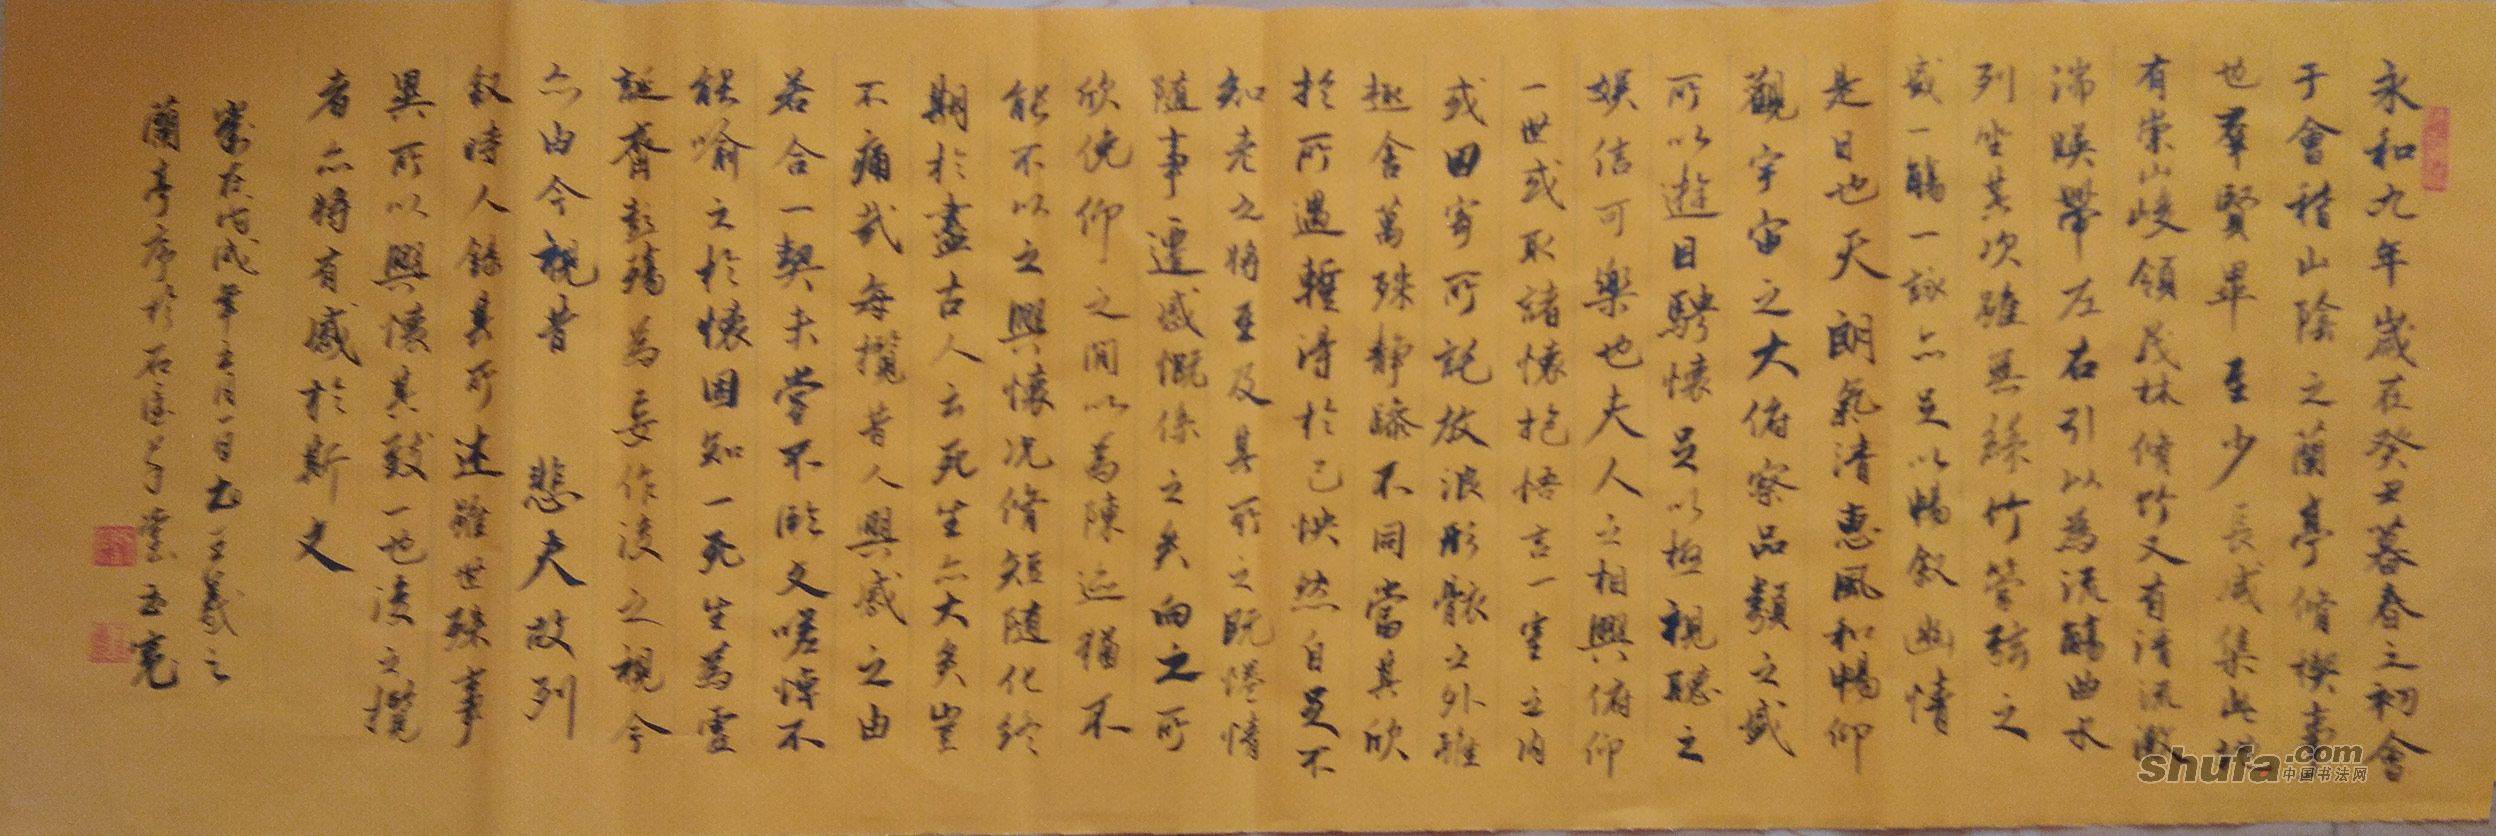 永和九年歲在癸丑暮春之初會
于會稽山陰之蘭亭脩禊事
也羣賢畢至少長咸集此地
有崇山峻領茂林脩竹又有清流激
湍暎帶左右引以為流觴曲水
列坐其次雖無絲竹管弦之
盛一觴一詠亦足以暢敘幽情
是日也天朗氣清惠風和暢仰
觀宇宙之大俯察品類之盛
所以遊目騁懷足以極視聽之
娛信可樂也夫人之相與俯仰
一世或取諸懷抱悟言一室之內
或因寄所託放浪形骸之外雖
趣舍萬殊靜躁不同當其欣
於所遇暫得於己怏然自足不
知老之將至及其所之既惓情
隨事遷感慨係之矣向之所
欣俛仰之間以為陳迹猶不
能不以之興懷況脩短隨化終
期於盡古人云死生亦大矣豈
不痛哉每攬昔人興感之由
若合一契未嘗不臨文嗟悼不
能喻之於懷固知一死生為虛
誕齊彭殤為妄作後之視今
亦由今視昔 悲夫故列
敘時人錄其所述雖世殊事
異所以興懷其致一也後之攬
者亦將有感於斯文
歲在戊年五月一日書王羲之
蘭亭序於石
shufa.com
中国书法网